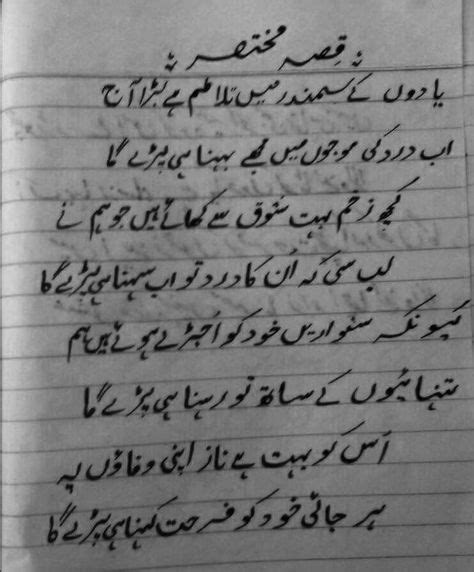 قصہ مختصر
یادوں کے سمندر میں تلاطم ہے بڑا آج
اب درد کی موجوں میں مجھے بہنا ہی پڑے گا
کچھ زخم بہت شوق سے کھائے ہیں جو ہم نے
لب سی کہ اُن کا درد تو اب سہنا ہی پڑے گا
کیونکہ سنواریں خود کو اُجڑے ہوئے ہیں ہم
تنہائیوں کے ساتھ تو رہنا ہی پڑے گا
اُس کو بہت ہے ناز اپنی وفاؤں پہ
ہرجائی خود کو فرحت کہنا ہی پڑے گا